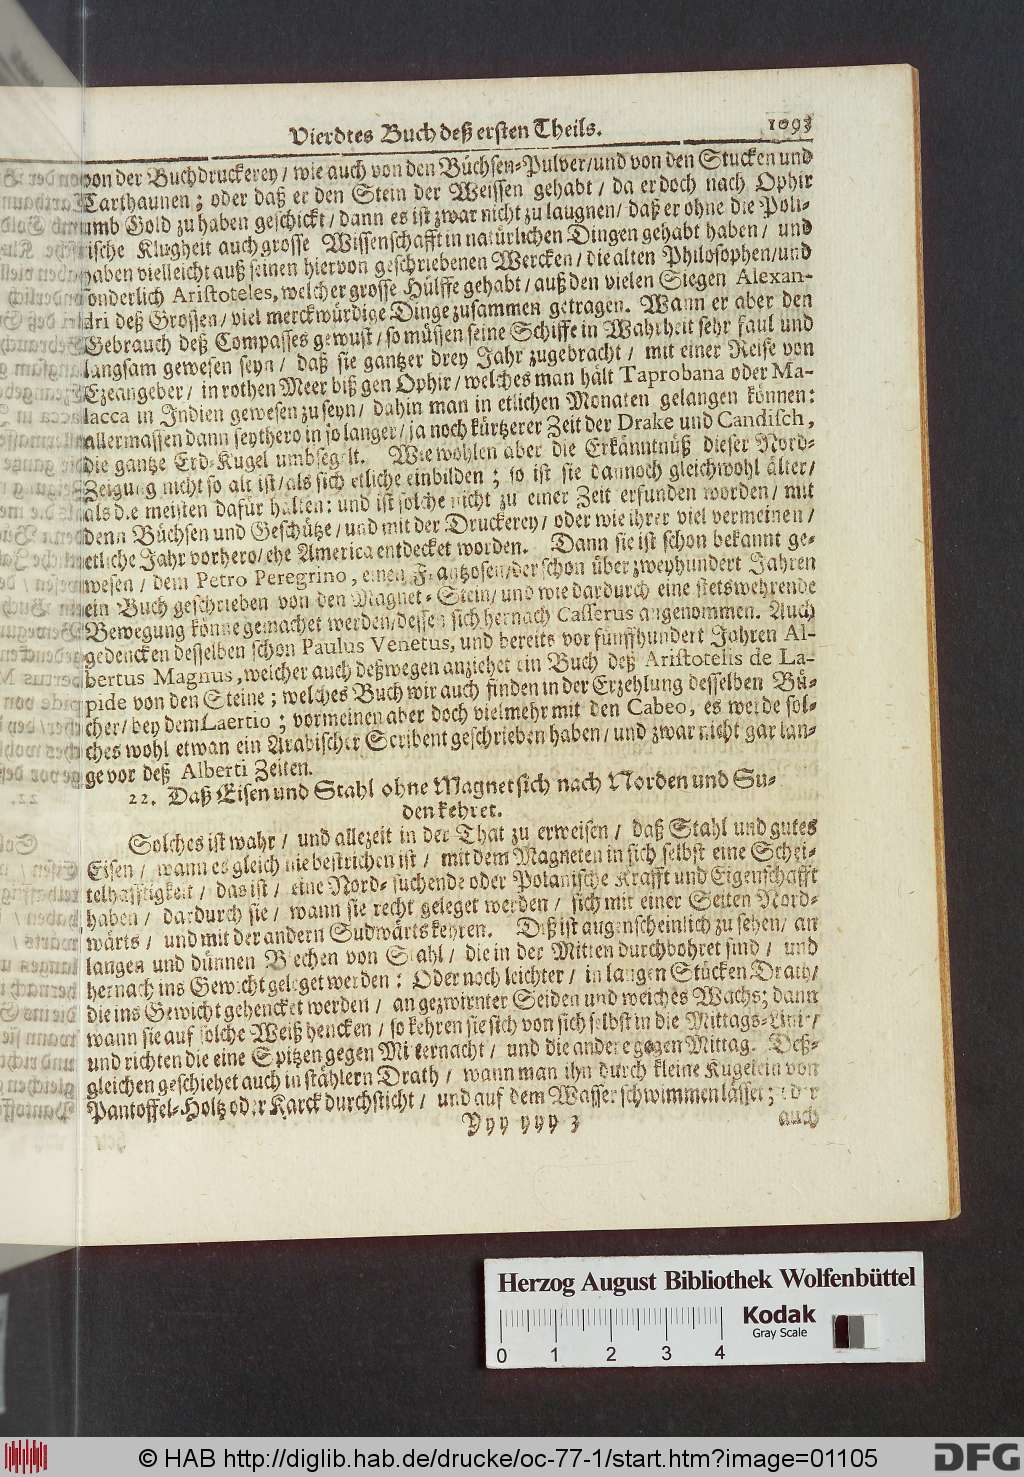 Vierdtes Buch deß ersten Theils. 1093
von der Buchdruckerey / wie auch von den Büchsen-Pulver/und von den Stucken und
Carthaunen; oder daß er den Stein der Weissen gehabt / da er doch nach Ophir
umb Gold zu haben geschickt / dann es ist zwar nicht zu laugnen / daß er ohne die Poli-
tische Klugheit auch grosse Wissenschafft in natürlichen Dingen gehabt haben / und
haben vielleicht auß seinen hiervon geschriebenen Wercken / die alten Philosophen/und
sonderlich Aristoteles, welcher grosse Hülffe gehabt / auß den vielen Siegen Alexan-
dri deß Grossen / viel merckwürdige Dinge zusammen getragen. Wann er aber den
Gebrauch deß Compasses gewust / so müssen seine Schiffe in Wahrheit sehr faul und
langsam gewesen seyn / daß sie gantzer drey Jahr zugebracht / mit einer Reise von
Ezeangeber / in rothen Meer biß gen Ophir / welches man hält Taprobana oder Ma-
lacca in Indien gewesen zu seyn / dahin man in etlichen Monaten gelangen können:
allermassen dann seythero in so langer / ja noch kürtzerer Zeit der Drake und Candisch,
die gantze Erd-Kugel umbsegelt. Wiewohlen aber die Erkänntnüß dieser Nord-
Zeigung nicht so alt ist / als sich etliche einbilden ; so ist sie dannoch gleichwohl älter/
als die meisten dafür halten: und ist solche nicht zu einer Zeit erfunden worden / mit
denn Büchsen und Geschütze / und mit der Druckerey / oder wie ihrer viel vermeinen /
etliche Jahr vorhero/ ehe America entdecket worden. Dann sie ist schon bekannt ge-
wesen / dem Petro Peregrino, einen Frantzosen/der schon über zweyhundert Jahren
ein Buch geschrieben von den Magnet-Stein/ und wie dardurch eine stetswehrende
Bewegung könne gemachet werden/dessen sich hernach Casserus angenommen. Auch
gedencken desselben schon Paulus Venetus, und bereits vor fünffhundert Jahren Al-
bertus Magnus, welcher auch deßwegen anziehet ein Buch deß Aristotelis de La-
pide von den Steine ; welches Buch wir auch finden in der Erzehlung desselben Bü-
cher/ bey dem Laertio ; vormeinen aber doch vielmehr mit den Cabeo, es werde sol-
ches wohl etwan ein Arabischer Scribent geschrieben haben / und zwar nicht gar lan-
ge vor deß Alberti Zeiten.
22. Daß Eisen und Stahl ohne Magnet sich nach Norden und Su-
den kehret.
Solches ist wahr / und allezeit in der That zu erweisen / daß Stahl und gutes
Eisen / wann es gleich nie bestrichen ist / mit dem Magneten in sich selbst eine Schei-
telhafftigkeit / das ist / eine Nord-suchende oder Polanische Krafft und Eigenschafft
haben / dardurch sie / wann sie recht geleget werden / sich mit einer Seiten Nord-
wärts / und mit der andern Sudwärts kehren. Diß ist augenscheinlich zu sehen/ an
langen und dünnen Blechen von Stahl / die in der Mitten durchbohret sind / und
hernach ins Gewicht geleget werden : Oder noch leichter / in langen Stücken Drath/
die ins Gewicht gehencket werden / an gezwirnter Seiden und weiches Wachs; dann
wann sie auf solche Weiß hencken / so kehren sie sich von sich selbst in die Mittags-Linie/
und richten die eine Spitzen gegen Mitternacht / und die andere gegen Mittag. Deß-
gleichen geschiehet auch in stählern Drath / wann man ihn durch kleine Kugelein von
Pantoffel-Holtz oder Karck durchsticht / und auf dem Wasser schwimmen lässet; oder
Yyy yyy 3 auch
Herzog August Bibliothek Wolfenbüttel
Kodak
Gray Scale
0 1 2 3 4
© HAB http://diglib.hab.de/drucke/oc-77-1/start.htm?image=01105
DFG